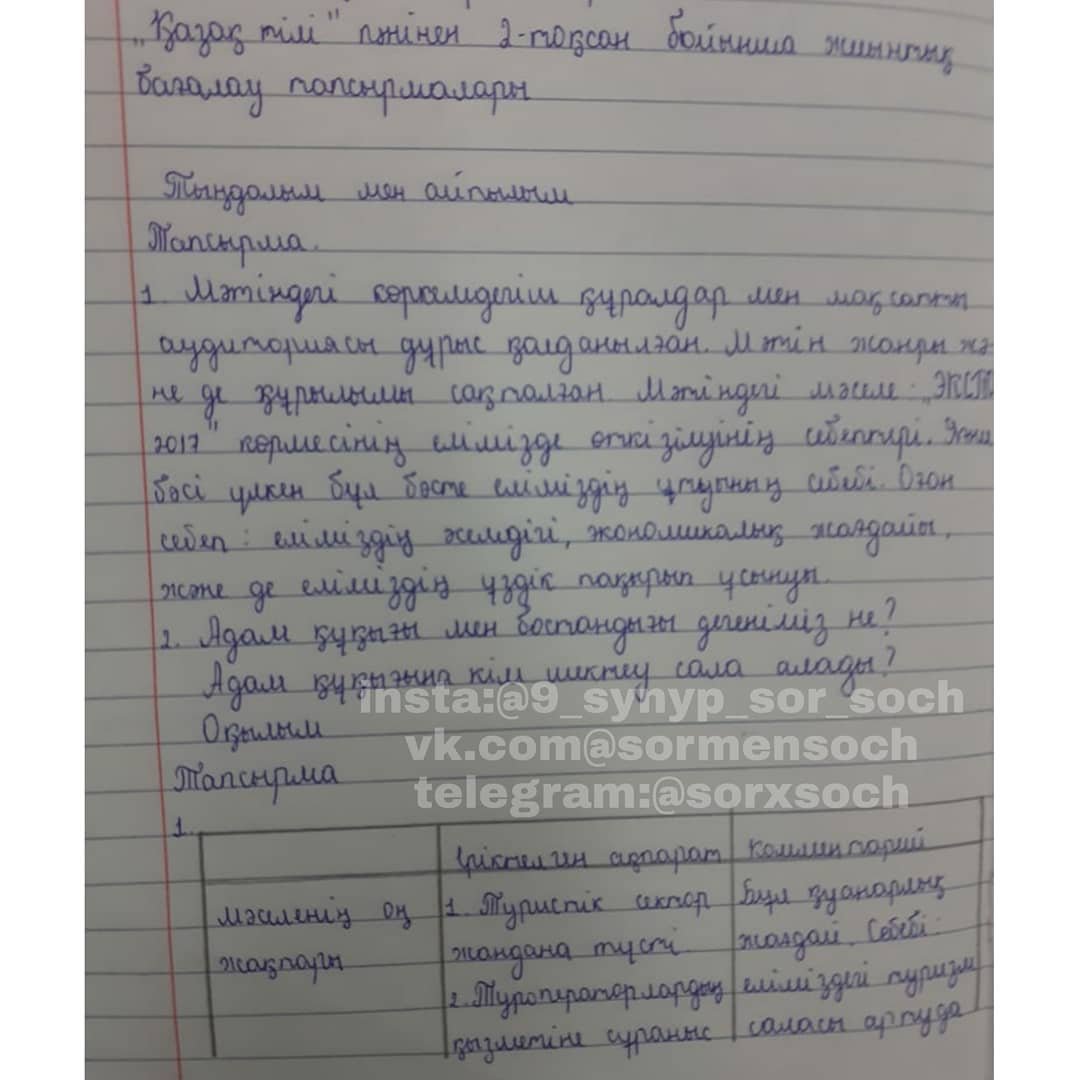 „Қазақ тілі" пәнінен 2-тоқсан бойынша жиынтық
бағалау тапсырмалары
Тыңдалым мен айтылым
Тапсырма.
1. Мәтіндегі көркемдегіш құралдар мен мақсатты
аудиториясы дұрыс қолданылған. Мәтін жанры жә-
не де құрылымы сақталған Мәтіндегі мәселе: „ЭКСПО
2017" көрмесінің елімізде өткізілуінің себептері. Яғни
бәсі үлкен бұл бәсте еліміздің ұтуының себебі. Оған
себеп: еліміздің әсемдігі, экономикалық жағдайы,
және де еліміздің үздік тақырып ұсынуы.
2. Адам құқығы мен бостандығы дегеніміз не?
Адам құқығына кім шектеу сала алады?
insta:@9_synyp_sor_soch
Оқылым
vk.com@sormensoch
Тапсырма
telegram:@sorxsoch
1.
Іріктелген ақпарат
Комментарий
мәселенің оң
жақтары
1. Туристік сектор
жандана түсті
2. Туроператорлардың
қызметіне сұраныс
Бұл қуанарлық
жағдай. Себебі:
еліміздегі туризм
саласы артуда